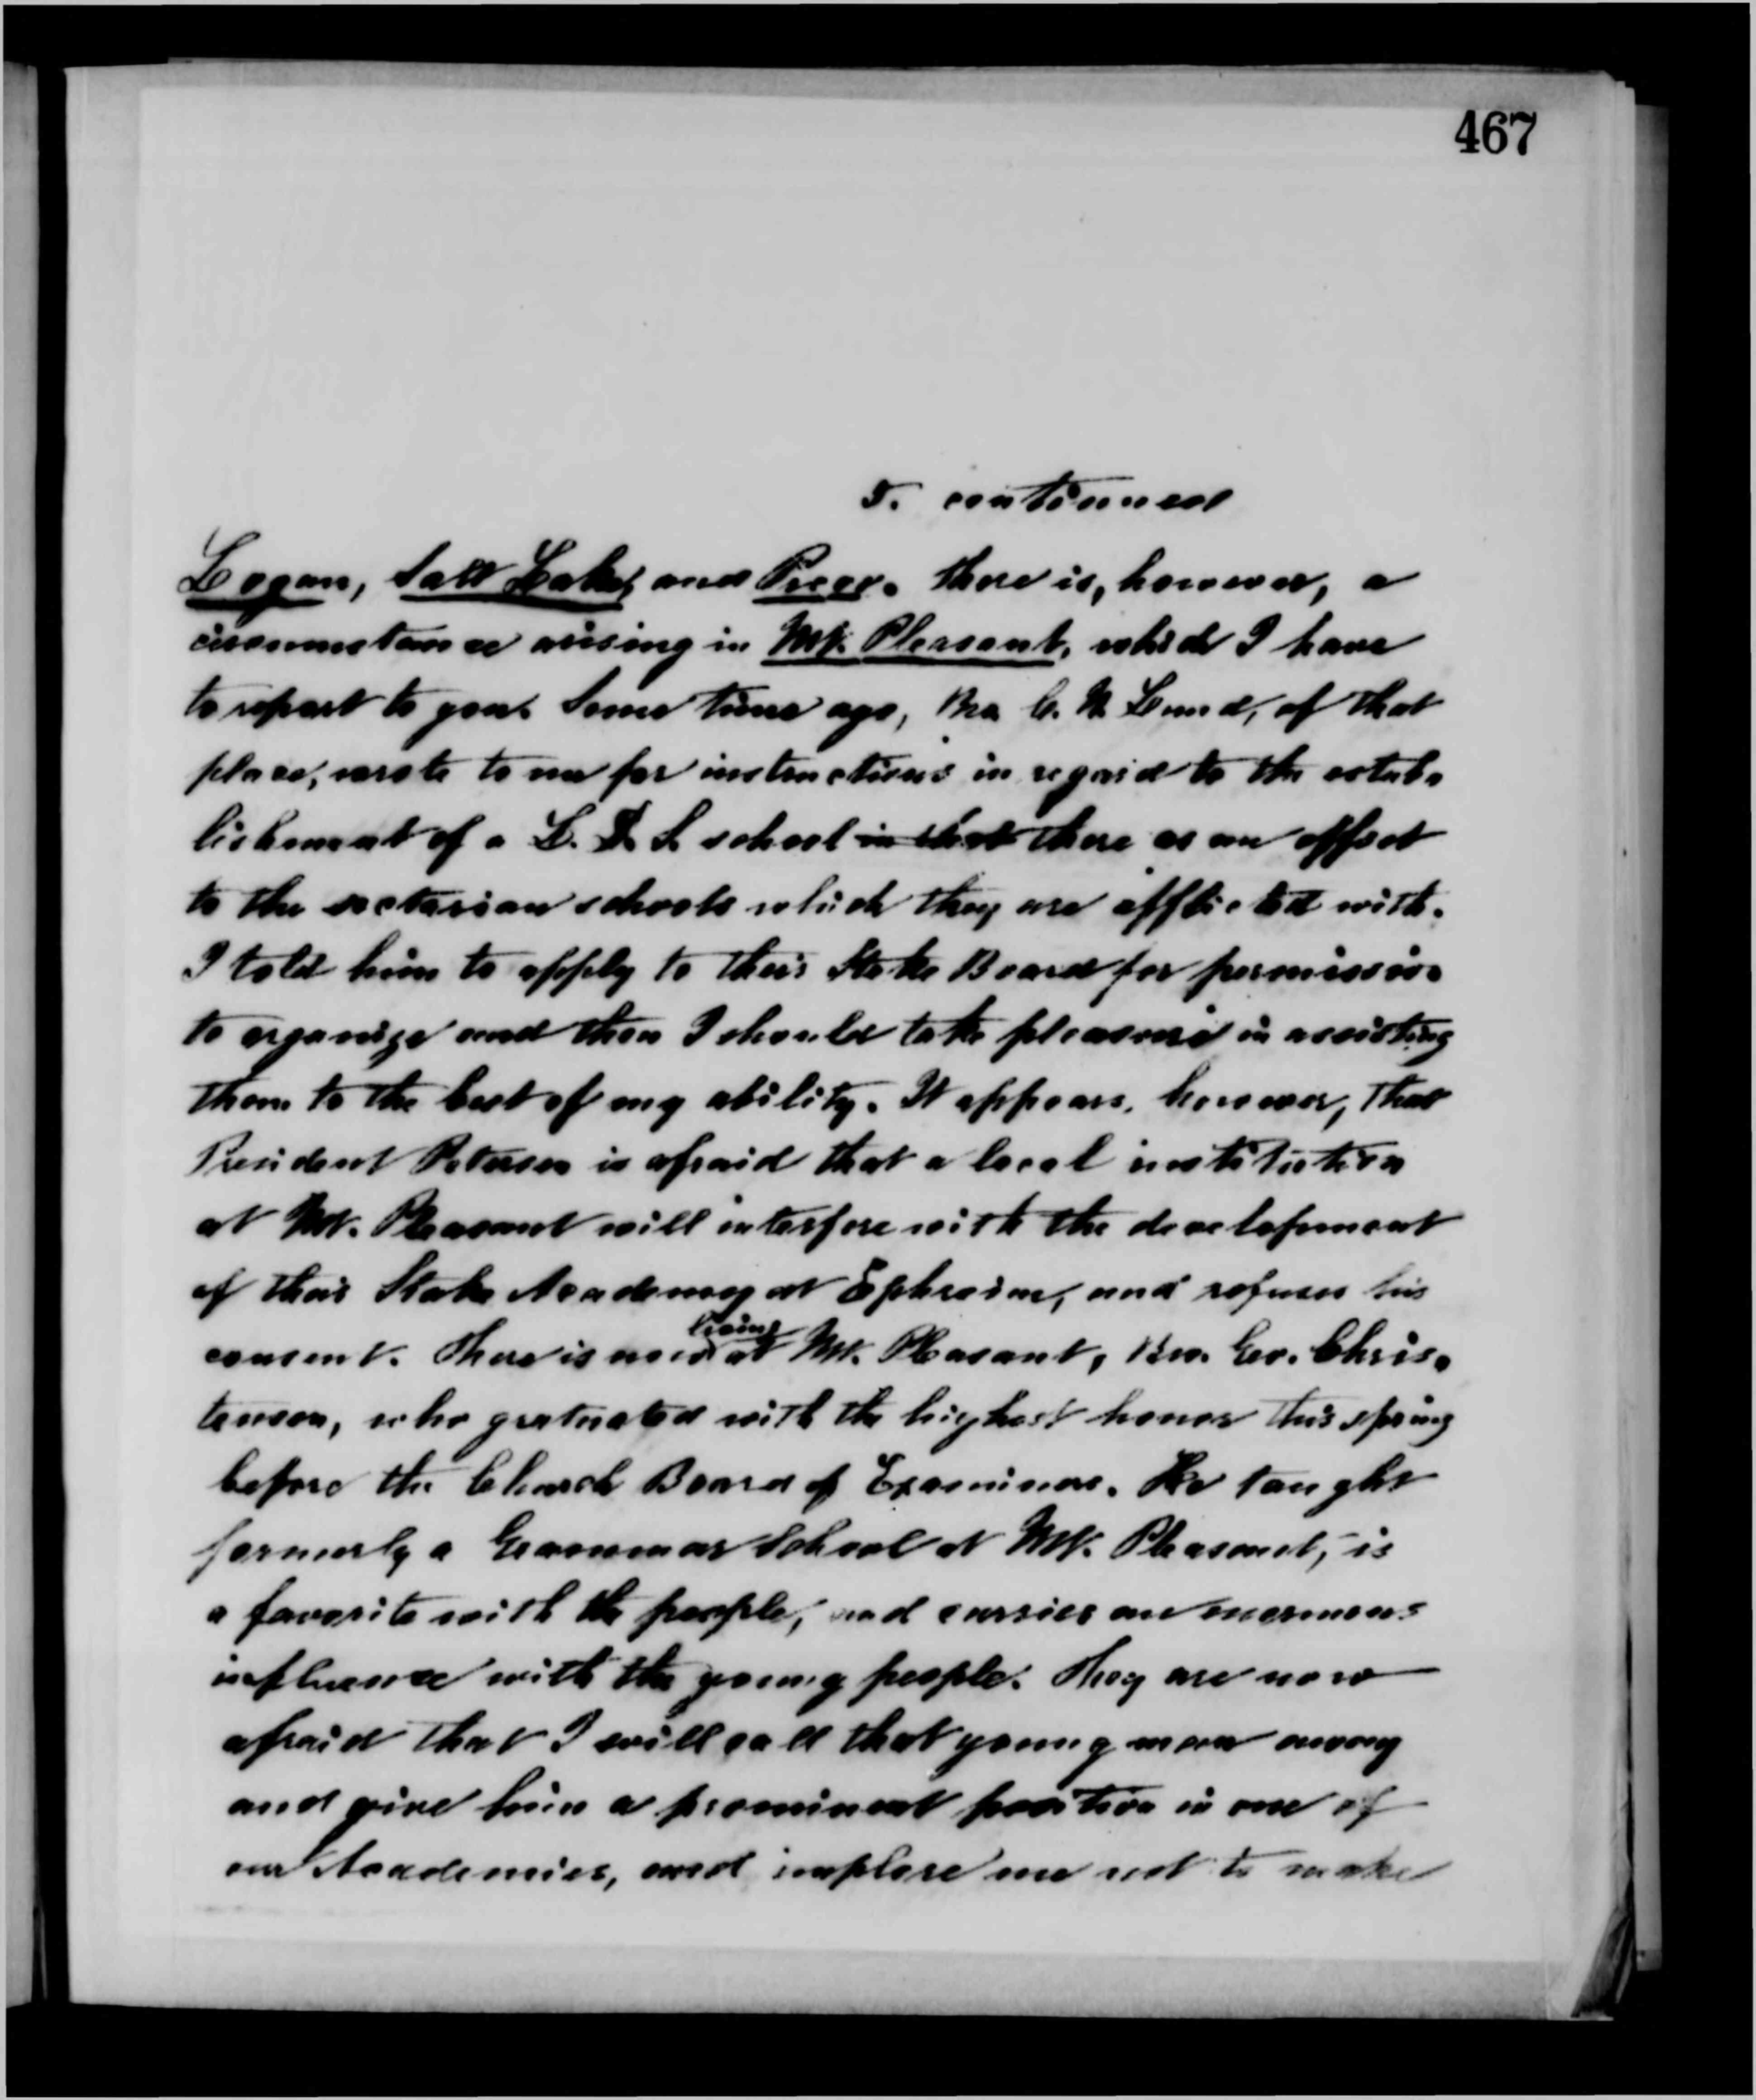 467
5. continued
Logan, Salt Lake, and Provo. There is, however, a
circumstance arising in Mt. Pleasant, which I have
to report to you. Some time ago, Bro. C. N. Lund, of that
place, wrote to me for instructions in regard to the estab-
lishment of a L. D. S. school in that there as an offset
to the sectarian schools which they are afflicted with.
I told him to apply to their Stake Board for permission
to organize and then I should take pleasure in assisting
them to the best of my ability. It appears, however, that
President Petersen is afraid that a local institution
at Mt. Pleasant will interfere with the developement
of their Stake Academy at Ephraim, and refuses his
consent. There is now living at Mt. Pleasant, Bro. Geo. Chris-
tensen, who graduated with the highest honor this spring
before the Church Board of Examiners. He taught
formerly a Grammar School at Mt. Pleasant, is
a favorite with the people, and carries an enormous
influence with the young people. They are now
afraid that I will call that young man away
and give him a prominent position in one of
our Academies, and implore me not to make